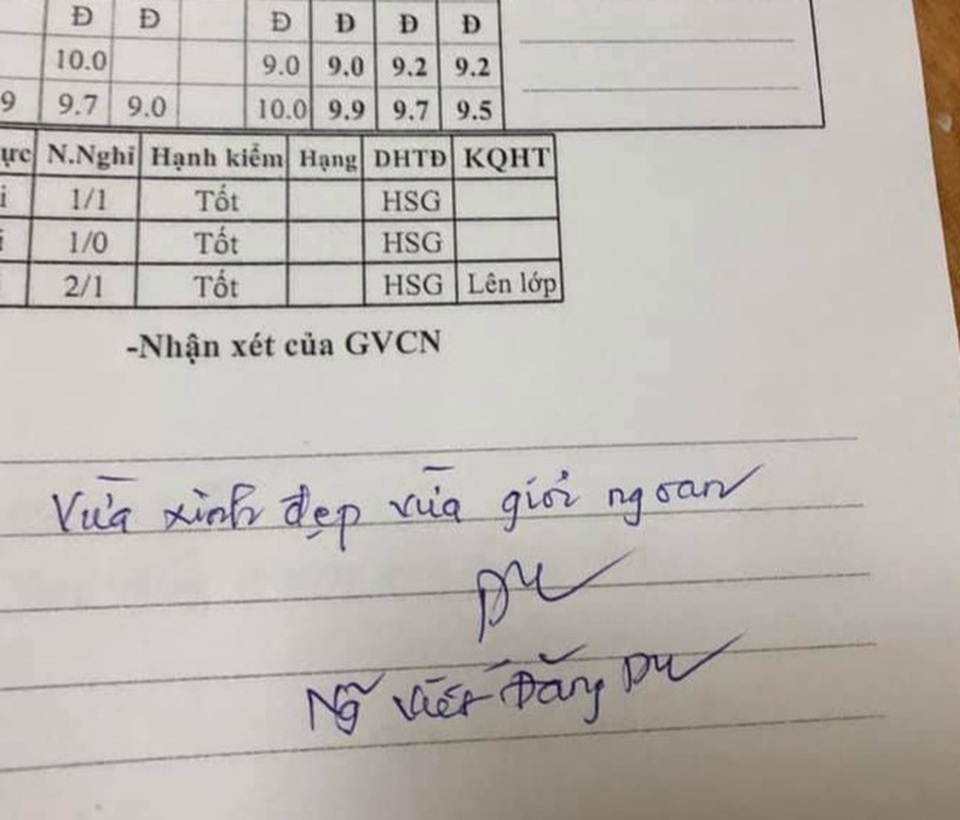 Đ Đ Đ Đ Đ Đ
10.0 9.0 9.0 9.2 9.2
9 9.7 9.0 10.0 9.9 9.7 9.5
ực N.Nghỉ Hạnh kiểm Hạng DHTĐ KQHT
i 1/1 Tốt HSG
i 1/0 Tốt HSG
2/1 Tốt HSG Lên lớp
-Nhận xét của GVCN
Vừa xinh đẹp vừa giỏi ngoan
Du
Ng Viết Đăng Du